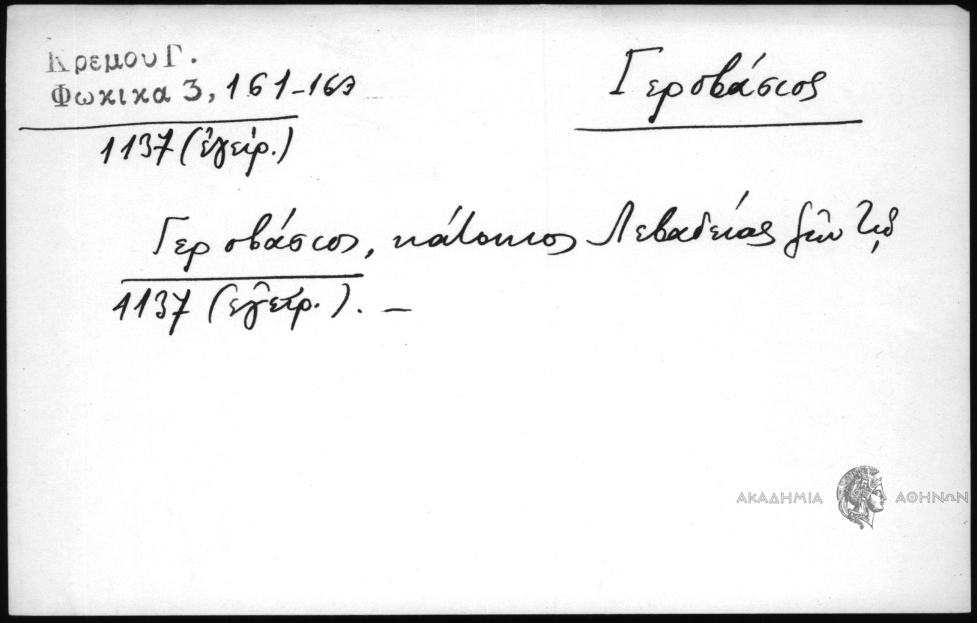 Κρεμου Γ.
Φωκικα 3, 161-163
1137 (ἐγείρ.)
Γεροβάσιος
Γεροβάσιος, κάτοικος Λεβαδείας
1137 (ἐγείρ.). —
ΑΚΑΔΗΜΙΑ ΑΘΗΝΩΝ